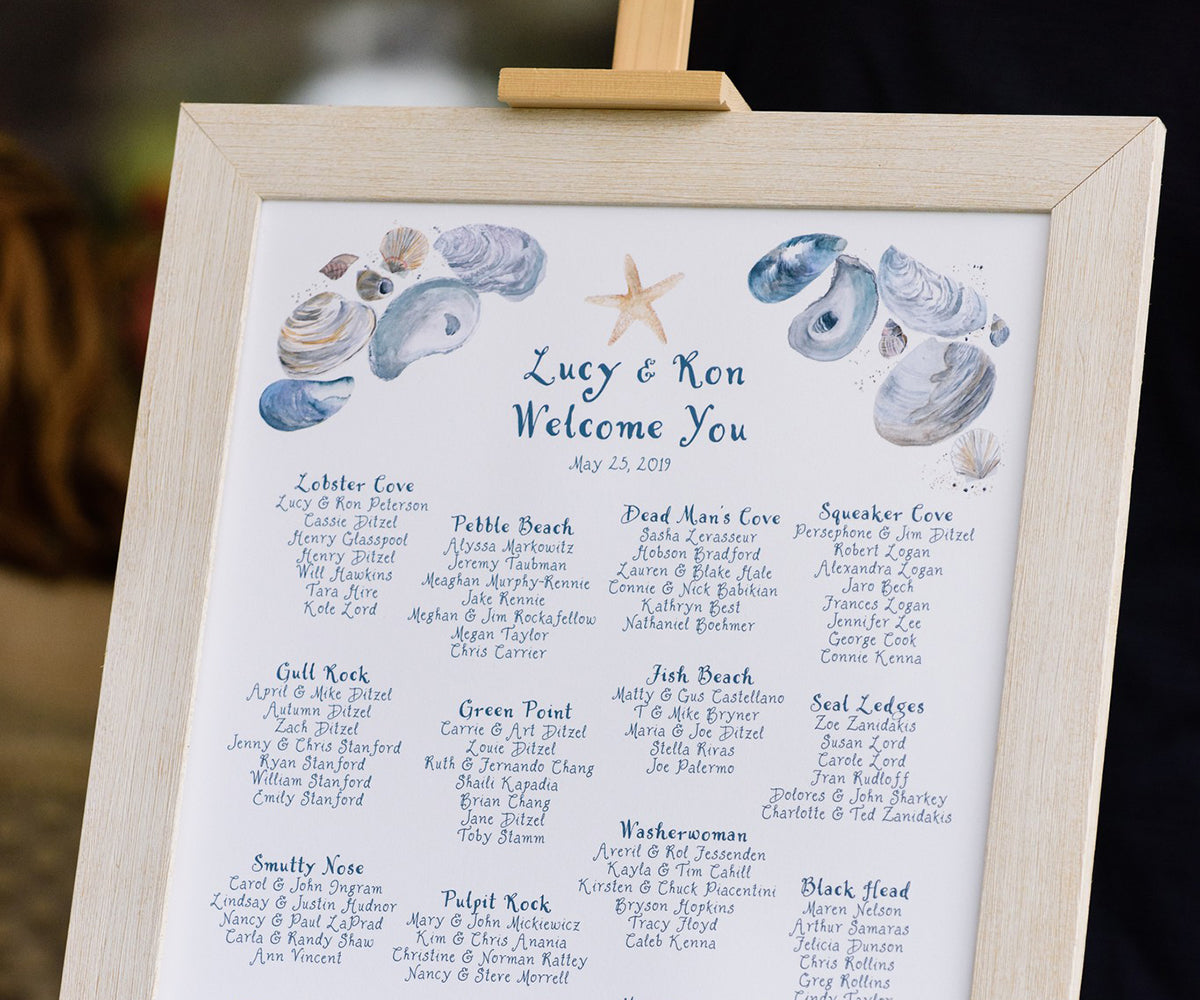 Lucy & Ron
Welcome You
May 25, 2019
Lobster Cove
Lucy & Ron Peterson
Cassie Ditzel
Henry Glasspool
Henry Ditzel
Will Hawkins
Tara Hire
Kole Lord
Gull Rock
April & Mike Ditzel
Autumn Ditzel
Zach Ditzel
Jenny & Chris Stanford
Ryan Stanford
William Stanford
Emily Stanford
Smutty Nose
Carol & John Ingram
Lindsay & Justin Hudnor
Nancy & Paul LaPrad
Carla & Randy Shaw
Ann Vincent
Pebble Beach
Alyssa Markowitz
Jeremy Taubman
Meaghan Murphy-Rennie
Jake Rennie
Meghan & Jim Rockafellow
Megan Taylor
Chris Carrier
Green Point
Carrie & Art Ditzel
Louie Ditzel
Ruth & Fernando Chang
Shaili Kapadia
Brian Chang
Jane Ditzel
Toby Stamm
Pulpit Rock
Mary & John Mickiewicz
Kim & Chris Anania
Christine & Norman Rattey
Nancy & Steve Morrell
Dead Man's Cove
Sasha Levasseur
Hobson Bradford
Lauren & Blake Hale
Connie & Nick Babikian
Kathryn Best
Nathaniel Boehmer
Fish Beach
Matty & Gus Castellano
T & Mike Bryner
Maria & Joe Ditzel
Stella Rivas
Joe Palermo
Washerwoman
Averil & Rol Fessenden
Kayla & Tim Cahill
Kirsten & Chuck Piacentini
Bryson Hopkins
Tracy Floyd
Caleb Kenna
Squeaker Cove
Persephone & Jim Ditzel
Robert Logan
Alexandra Logan
Jaro Bech
Frances Logan
Jennifer Lee
George Cook
Connie Kenna
Seal Ledges
Zoe Zanidakis
Susan Lord
Carole Lord
Fran Rudloff
Dolores & John Sharkey
Charlotte & Ted Zanidakis
Black Head
Maren Nelson
Arthur Samaras
Felicia Dunson
Chris Rollins
Greg Rollins
Cindy Taylor